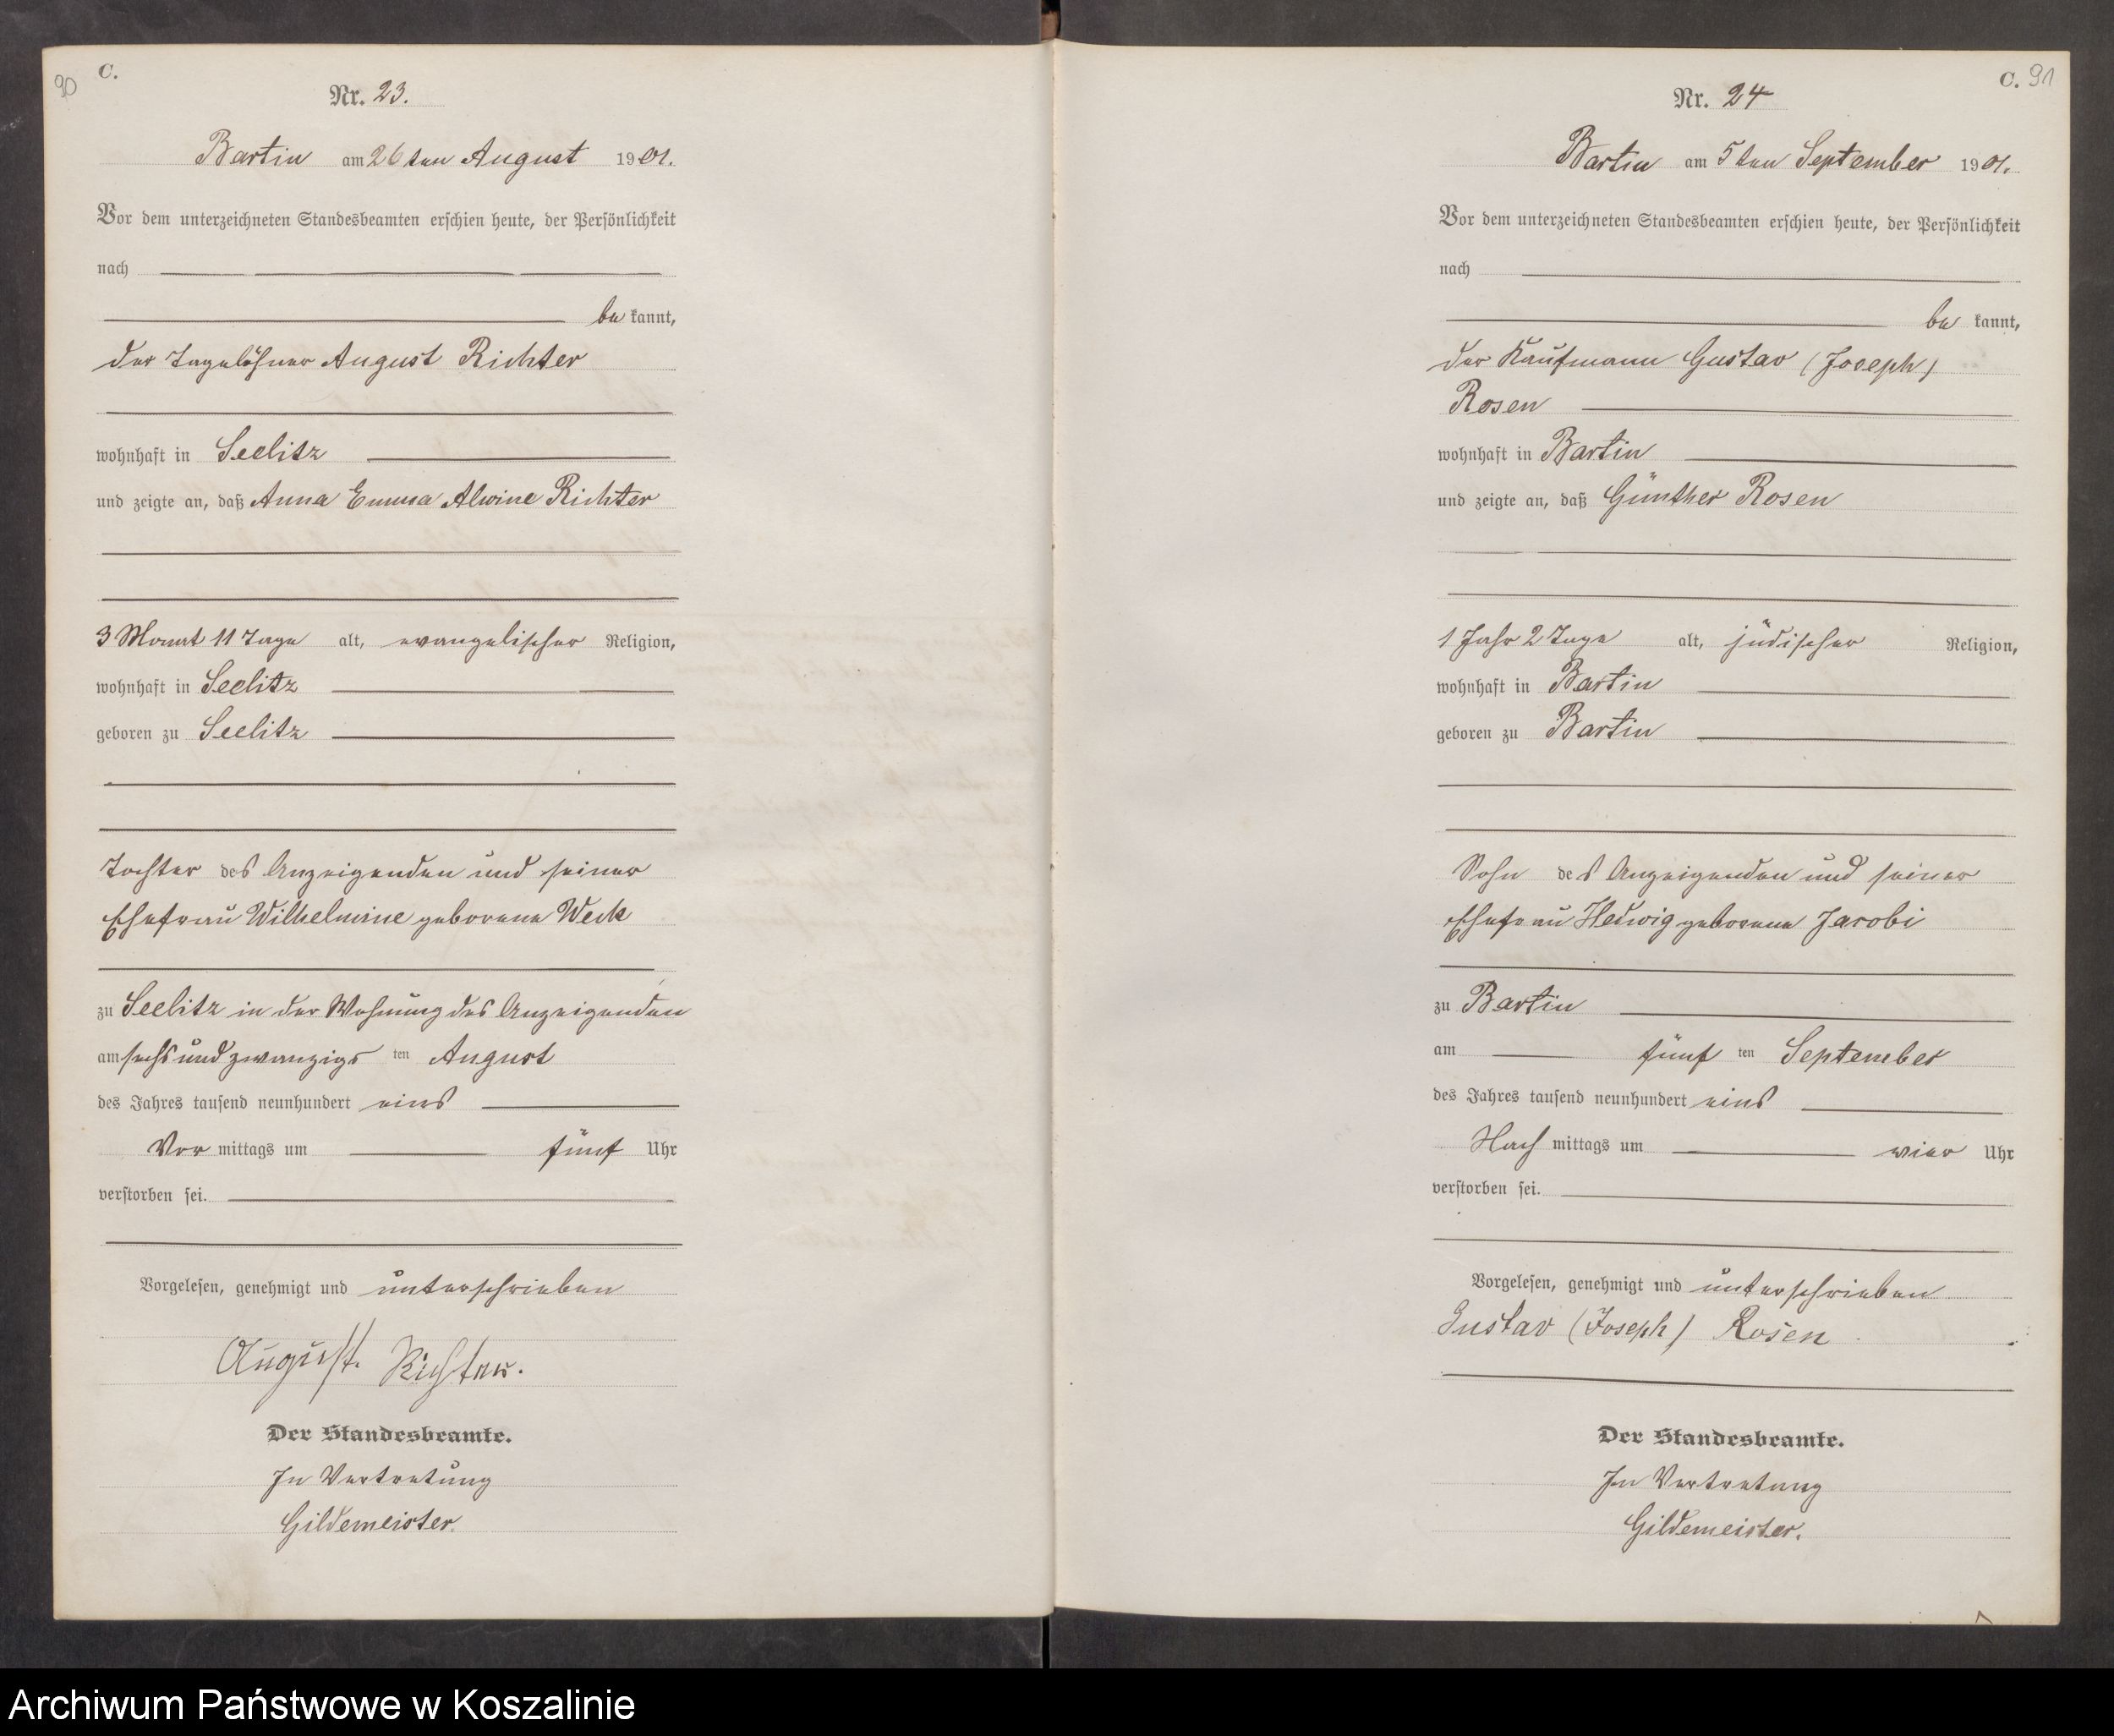 90
C.
Nr. 23.
Bartin am 26ten August 1901.
Vor dem unterzeichneten Standesbeamten erschien heute, der Persönlichkeit
nach
be kannt,
der Tagelöhner August Richter
wohnhaft in Seelitz
und zeigte an, daß Anna Emma Alwine Richter
3 Monat 11 Tage alt, evangelischer Religion,
wohnhaft in Seelitz
geboren zu Seelitz
Tochter des Anzeigenden und seiner
Ehefrau Wilhelmine geborene Weck
zu Seelitz in der Wohnung des Anzeigenden
am sechs und zwanzigs ten August
des Jahres tausend neunhundert eins
Vor mittags um fünf Uhr
verstorben sei.
Vorgelesen, genehmigt und unterschrieben
August Richter.
Der Standesbeamte.
In Vertretung
Gildemeister.
C. 91
Nr. 24
Bartin am 5ten September 1901.
Vor dem unterzeichneten Standesbeamten erschien heute, der Persönlichkeit
nach
be kannt,
der Kaufmann Gustav (Joseph)
Rosen
wohnhaft in Bartin
und zeigte an, daß Günther Rosen
1 Jahr 2 Tage alt, jüdischer Religion,
wohnhaft in Bartin
geboren zu Bartin
Sohn des Anzeigenden und seiner
Ehefrau Hedwig geborene Jacobi
zu Bartin
am fünf ten September
des Jahres tausend neunhundert eins
Nach mittags um vier Uhr
verstorben sei.
Vorgelesen, genehmigt und unterschrieben
Gustav (Joseph) Rosen
Der Standesbeamte.
In Vertretung
Gildemeister.
Archiwum Państwowe w Koszalinie